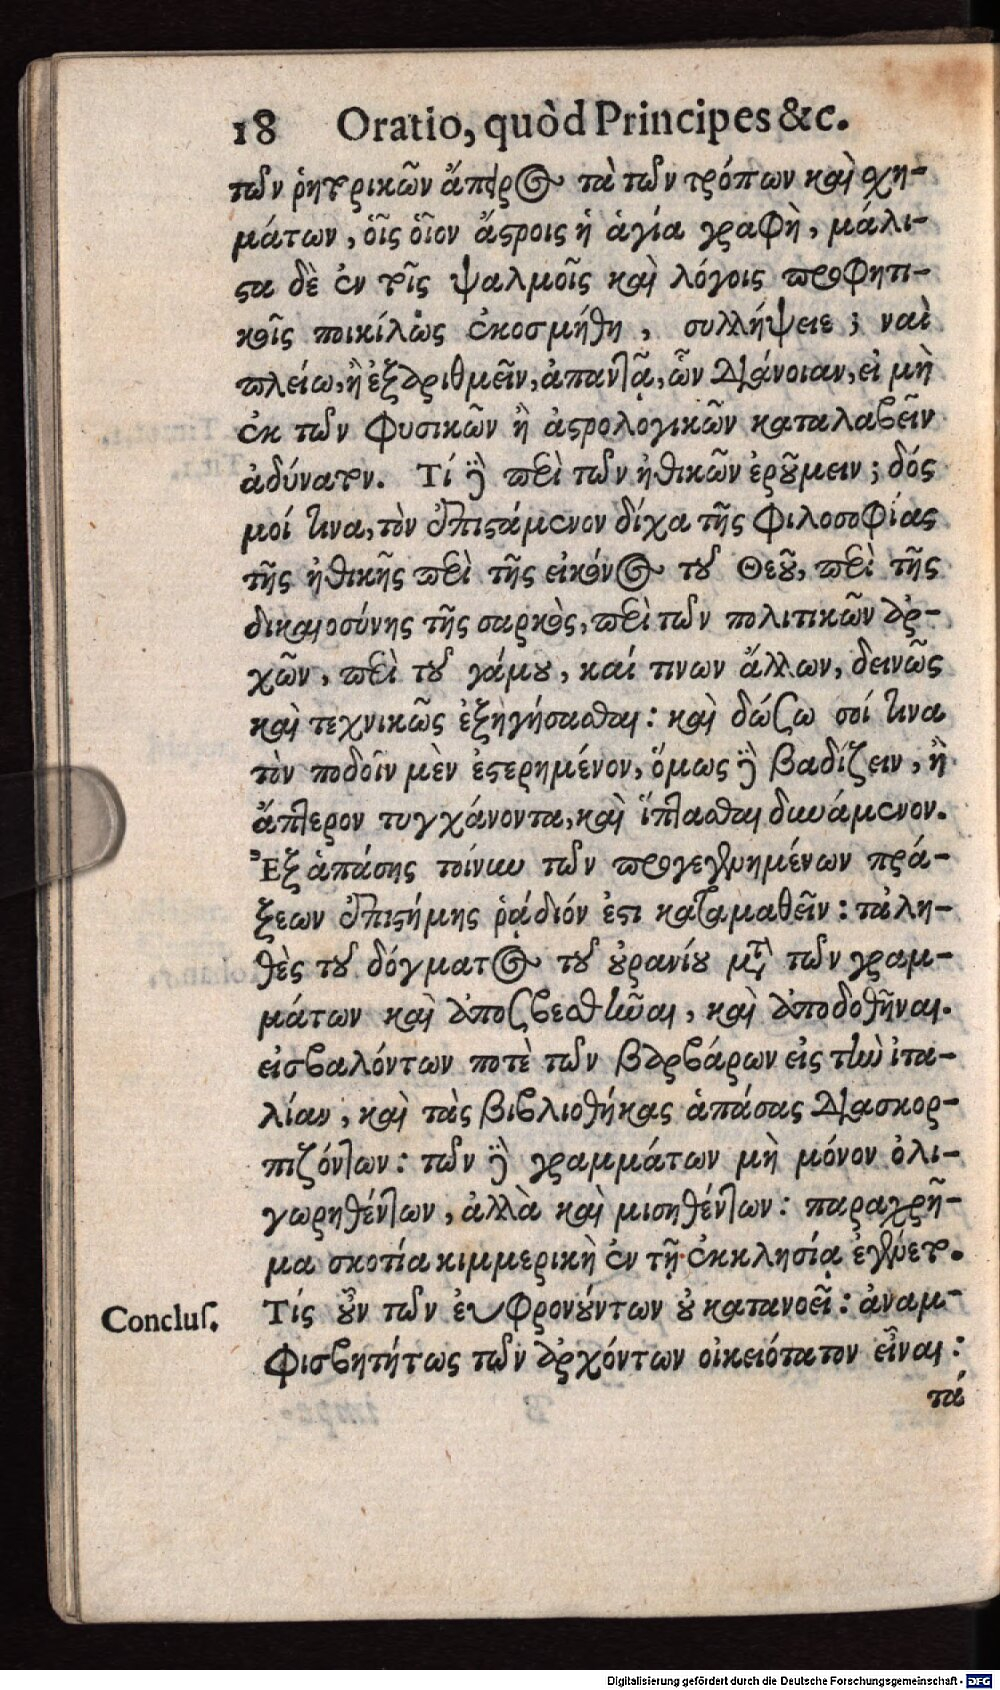 18 Oratio, quòd Principes &c.
τῶν ῥητορικῶν ἄπειρος τὰ τῶν τρόπων καὶ σχη-
μάτων, οἷς οἷον ἄστροις ἡ ἁγία γραφὴ, μάλι-
στα δὲ ἐν τοῖς ψαλμοῖς καὶ λόγοις προφητι-
κοῖς ποικίλως ἐκοσμήθη, συλλήψειε; ναὶ
πλείω, ἢ ἐξαριθμεῖν, ἀπαντᾷ, ὧν διάνοιαν, εἰ μὴ
ἐκ τῶν φυσικῶν ἢ ἀστρολογικῶν καταλαβεῖν
ἀδύνατον. Τί δὲ περὶ τῶν ἠθικῶν ἐροῦμειν; δός
μοί τινα, τὸν ἐπιστάμενον δίχα τῆς φιλοσοφίας
τῆς ἠθικῆς περὶ τῆς εἰκόνος τοῦ Θεοῦ, περὶ τῆς
δικαιοσύνης τῆς σαρκὸς, περὶ τῶν πολιτικῶν ἀρ-
χῶν, περὶ τοῦ γάμου, καί τινων ἄλλων, δεινῶς
καὶ τεχνικῶς ἐξηγήσασθαι: καὶ δώσω σοί τινα
τὸν ποδοῖν μὲν ἐστερημένον, ὅμως δὲ βαδίζειν, ἢ
ἄπτερον τυγχάνοντα, καὶ ἵπτασθαι δυνάμενον.
Ἐξ ἁπάσης τοίνυν τῶν προγεγενημένων πρά-
ξεων ἐπιστήμης ῥᾴδιόν ἐστι καταμαθεῖν: τἀλη-
θὲς τοῦ δόγματος τοῦ οὐρανίου μετὰ τῶν γραμ-
μάτων καὶ ἀποσβεσθῆναι, καὶ ἀποδοθῆναι.
εἰσβαλόντων ποτὲ τῶν βαρβάρων εἰς τὴν ἰτα-
λίαν, καὶ τὰς βιβλιοθήκας ἁπάσας διασκορ-
πιζόντων: τῶν δὲ γραμμάτων μὴ μόνον ὀλι-
γωρηθέντων, ἀλλὰ καὶ μισηθέντων: παραχρῆ-
μα σκοτία κιμμερικὴ ἐν τῇ ἐκκλησίᾳ ἐγένετο.
Concluſ. Τίς οὖν τῶν εὐφρονούντων οὐ κατανοεῖ: ἀναμ-
φισβητήτως τῶν ἀρχόντων οἰκειότατον εἶναι:
τά
Digitalisierung gefördert durch die Deutsche Forschungsgemeinschaft - DFG